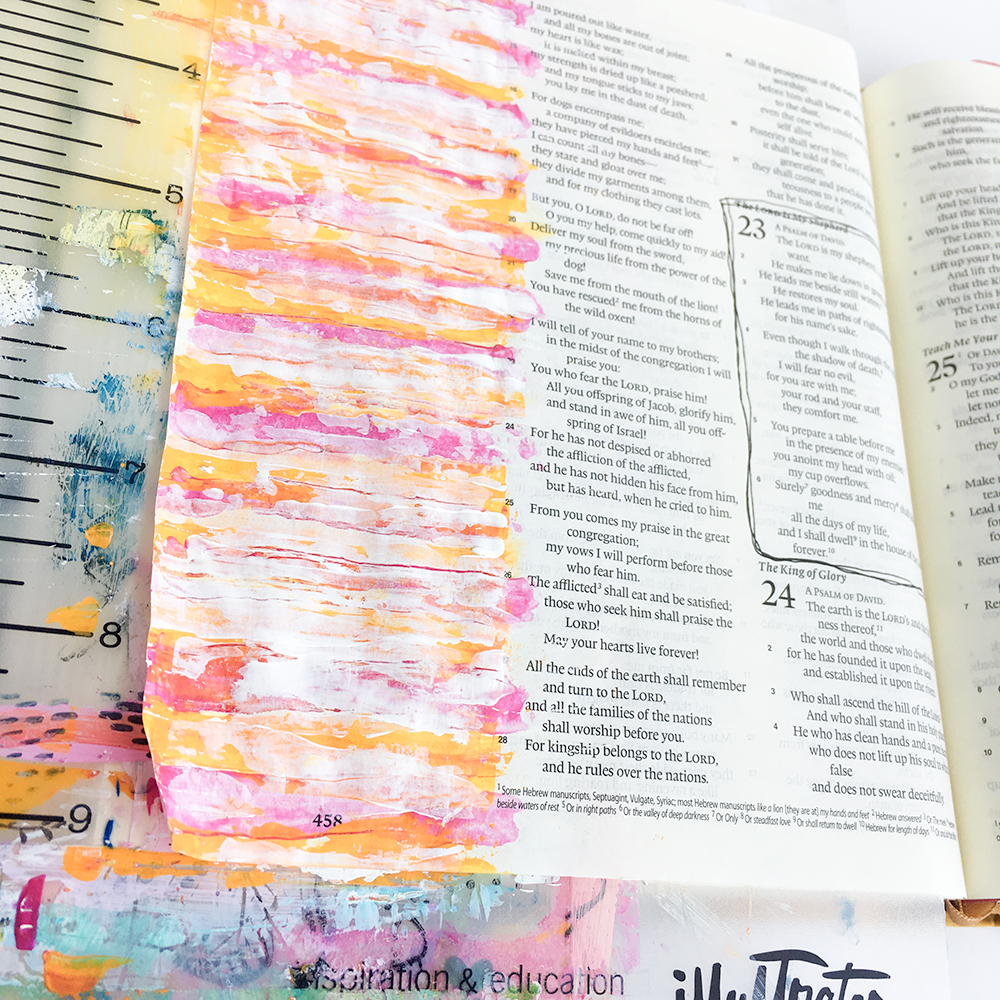 4
5
6
7
8
9
I am poured out like water,
and all my bones are out of joint;
my heart is like wax;
it is melted within my breast;
my strength is dried up like a potsherd,
and my tongue sticks to my jaws;
you lay me in the dust of death.
For dogs encompass me;
a company of evildoers encircles me;
they have pierced my hands and feet
I can count all my bones—
they stare and gloat over me;
they divide my garments among them,
and for my clothing they cast lots.
But you, O LORD, do not be far off!
O you my help, come quickly to my aid!
Deliver my soul from the sword,
my precious life from the power of the
dog!
Save me from the mouth of the lion!
You have rescued² me from the horns of
the wild oxen!
I will tell of your name to my brothers;
in the midst of the congregation I will
praise you:
You who fear the LORD, praise him!
All you offspring of Jacob, glorify him,
and stand in awe of him, all you off-
spring of Israel!
24 For he has not despised or abhorred
the affliction of the afflicted,
and he has not hidden his face from him,
but has heard, when he cried to him.
25 From you comes my praise in the great
congregation;
my vows I will perform before those
who fear him.
26 The afflicted³ shall eat and be satisfied;
those who seek him shall praise the
LORD!
May your hearts live forever!
All the ends of the earth shall remember
and turn to the LORD,
and all the families of the nations
shall worship before you.
28 For kingship belongs to the LORD,
and he rules over the nations.
All the prosperous of the
worship;
before him shall bow all
to the dust,
even the one who could
self alive.
Posterity shall serve him;
it shall be told of the Lord
generation;
they shall come and proclaim
teousness to a people
that he has done it.
The LORD Is My Shepherd
23 A PSALM OF DAVID.
The LORD is my shepherd;
want.
2 He makes me lie down in green
He leads me beside still waters.
3 He restores my soul.
He leads me in paths of
for his name's sake.
4 Even though I walk through the
the shadow of death,
I will fear no evil,
for you are with me;
your rod and your staff,
they comfort me.
5 You prepare a table before me
in the presence of my enemies;
you anoint my head with oil;
my cup overflows.
6 Surely⁷ goodness and mercy⁸
me
all the days of my life,
and I shall dwell⁹ in the house of
forever.¹⁰
The King of Glory
24 A PSALM OF DAVID.
The earth is the LORD's and
ness thereof,¹¹
the world and those who
2 for he has founded it upon the seas
and established it upon the
3 Who shall ascend the hill of the
And who shall stand in his holy
4 He who has clean hands and a pure
who does not lift up his soul to
false
and does not swear deceitfully
¹ Some Hebrew manuscripts, Septuagint, Vulgate, Syriac; most Hebrew manuscripts like a lion [they are at] my hands and feet ² Hebrew answered
beside waters of rest ⁵ Or in right paths ⁶ Or the valley of deep darkness ⁷ Or Only ⁸ Or steadfast love ⁹ Or shall return to dwell ¹⁰ Hebrew for length of days
458
He will receive
and righteousness
salvation.
Such is the
him,
who seek the
Lift up your
And be lifted
that the King
Who is this
The LORD,
the LORD,
Lift up your
And lift
that the King
Who is this
The LORD
he is the
Teach Me Your
25 OF DAVID
To you
O my God
let me
let not
Indeed,
they
4 Make
5 Lead
6
7
8
9
10
inspiration & education